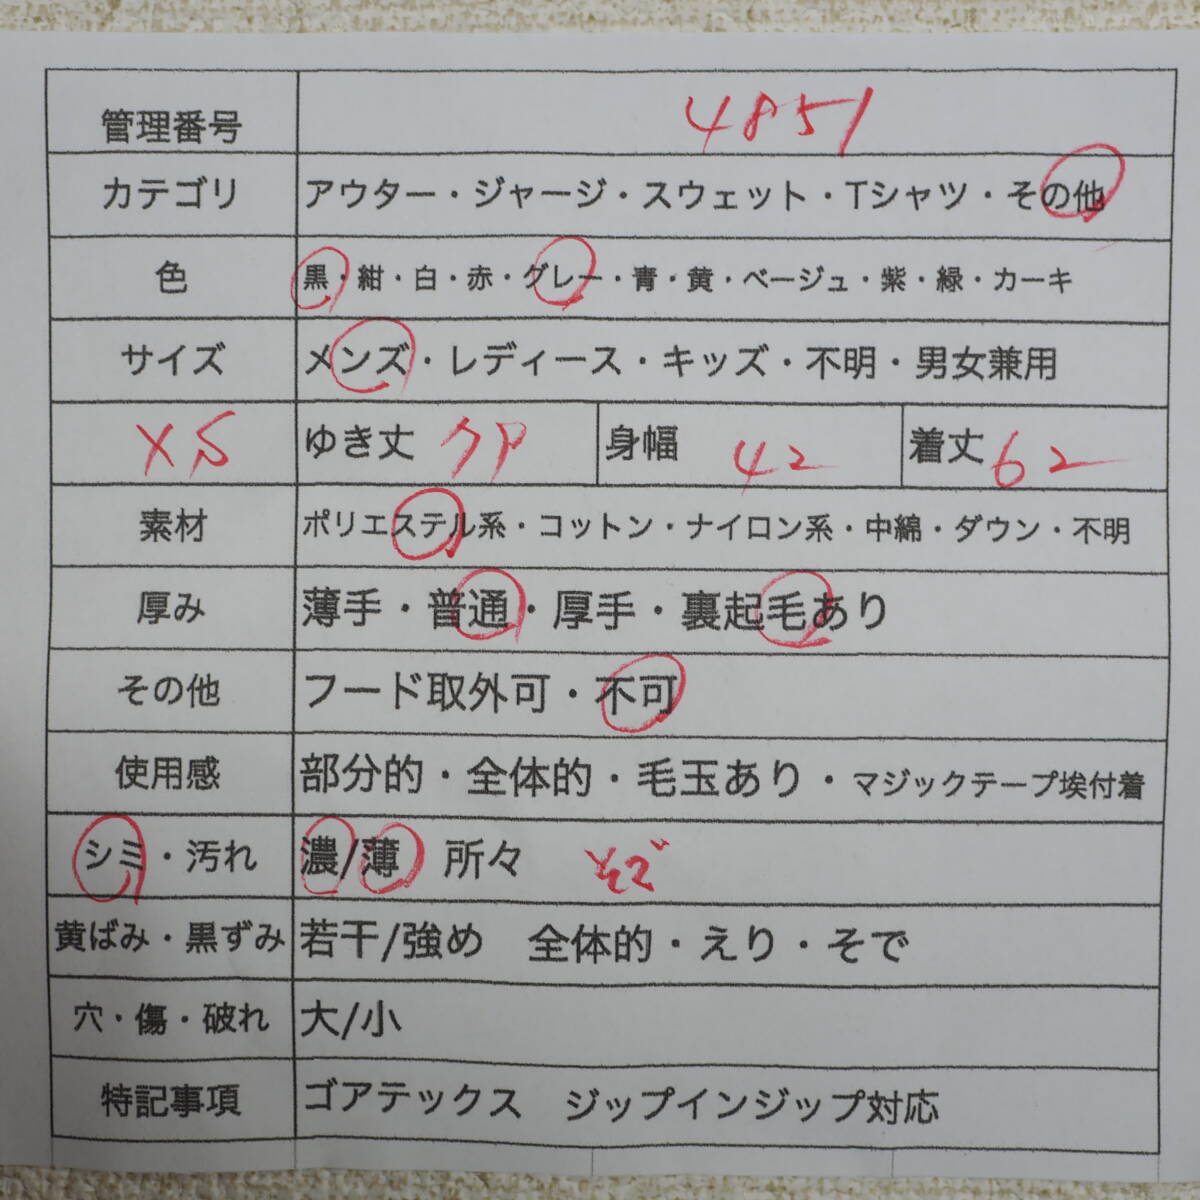 管理番号 4851
カテゴリ アウター・ジャージ・スウェット・Tシャツ・その他
色 黒・紺・白・赤・グレー・青・黄・ベージュ・紫・緑・カーキ
サイズ メンズ・レディース・キッズ・不明・男女兼用
XS ゆき丈 身幅 42 着丈 62
素材 ポリエステル系・コットン・ナイロン系・中綿・ダウン・不明
厚み 薄手・普通・厚手・裏起毛あり
その他 フード取外可・不可
使用感 部分的・全体的・毛玉あり・マジックテープ埃付着
シミ・汚れ 濃/薄 所々 そで
黄ばみ・黒ずみ 若干/強め 全体的・えり・そで
穴・傷・破れ 大/小
特記事項 ゴアテックス ジップインジップ対応